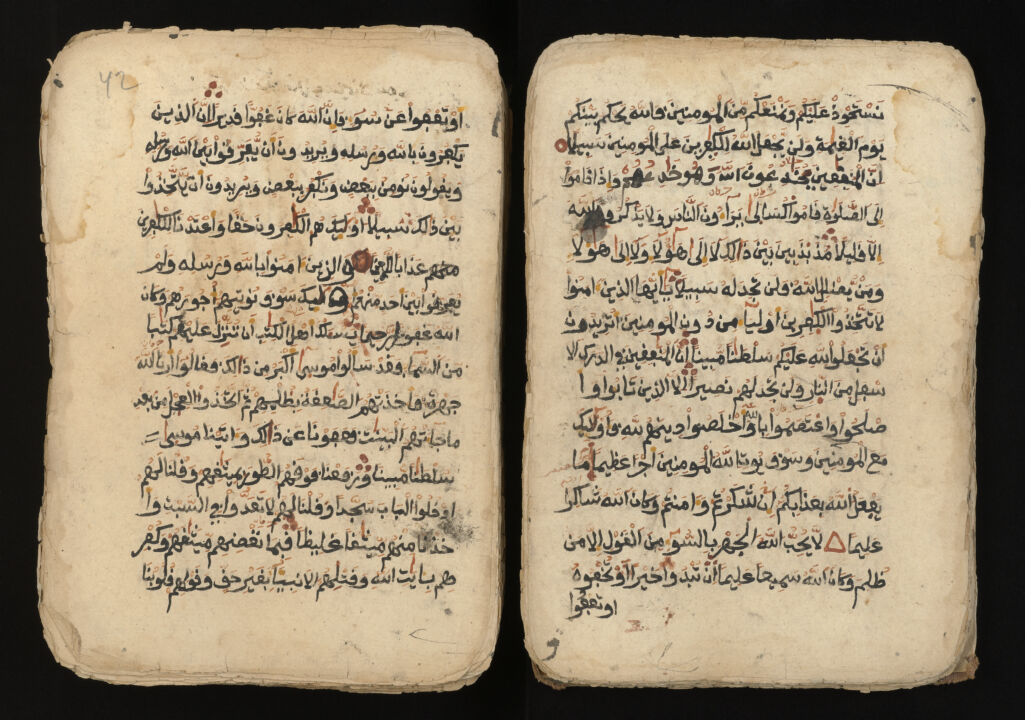 نستحوذ عليكم ونمنعكم من المومنين فالله يحكم بينكم
يوم القيمة ولن يجعل الله للكفرين على المومنين سبيلا
ان المنفقين يخدعون الله وهو خدعهم واذا قاموا
الى الصلوة قاموا كسالى يرآون الناس ولا يذكرون الله
الا قليلا مذبذبين بين ذالك لا الى هؤلا ولا الى هؤلا
ومن يضلل الله فلن تجد له سبيلا يايها الذين امنوا
لا تتخذوا الكفرين اوليا من دون المومنين اتريدون
ان تجعلوا لله عليكم سلطنا مبينا ان المنفقين في الدرك الا
سفل من النار ولن تجد لهم نصيرا الا الذين تابوا وا
صلحوا واعتصموا بالله واخلصوا دينهم لله فاوليك
مع المومنين وسوف يوت الله المومنين اجرا عظيما ما
يفعل الله بعذابكم ان شكرتم وامنتم وكان الله شاكرا
عليما لا يحب الله الجهر بالسو من القول الا من
ظلم وكان الله سميعا عليما ان تبدوا خيرا او تخفوه
او تعفوا
42
او تعفوا عن سو فان الله كان عفوا قديرا ان الذين
يكفرون بالله ورسله ويريدون ان يفرقوا بين الله ورسله
ويقولون نومن ببعض ونكفر ببعض ويريدون ان يتخذوا
بين ذالك سبيلا اوليك هم الكفرون حقا واعتدنا للكفرين
عذابا والذين امنوا بالله ورسله ولم
يفرقوا بين احد منهم اوليك سوف نوتيهم اجورهم وكان
الله غفورا رحيما يسلك اهل الكتب ان تنزل عليهم كتبا
من السما فقد سالوا موسى اكبر من ذالك فقالوا ارنا الله
جهرة فاخذتهم الصعقة بظلمهم ثم اتخذوا العجل من بعد
ما جاتهم البينت فعفونا عن ذالك واتينا موسى
سلطنا مبينا ورفعنا فوقهم الطور بميثقهم وقلنا لهم
ادخلوا الباب سجدا وقلنا لهم لا تعدوا في السبت وا
خذنا منهم ميثقا غليظا فبما نقضهم ميثقهم وكفر
هم بايت الله وقتلهم الانبيا بغير حق وقولهم قلوبنا